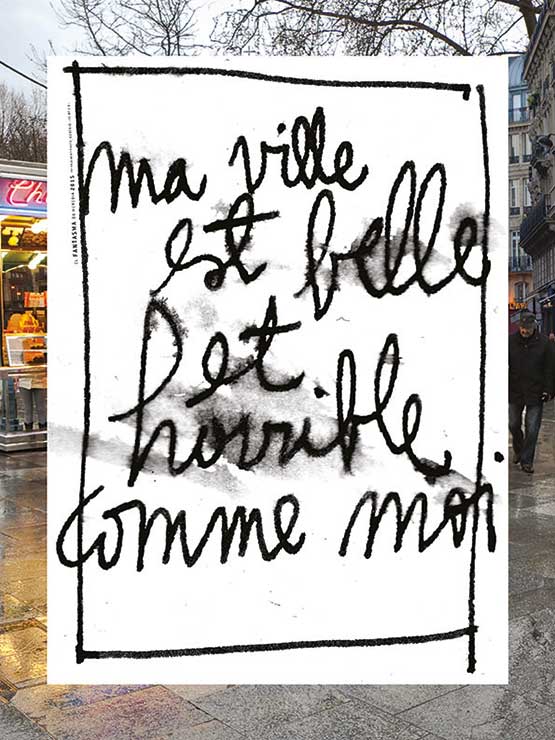 ma ville
est belle
et
horrible
comme moi
FANTASMA DE HEREDIA 2015
Ch